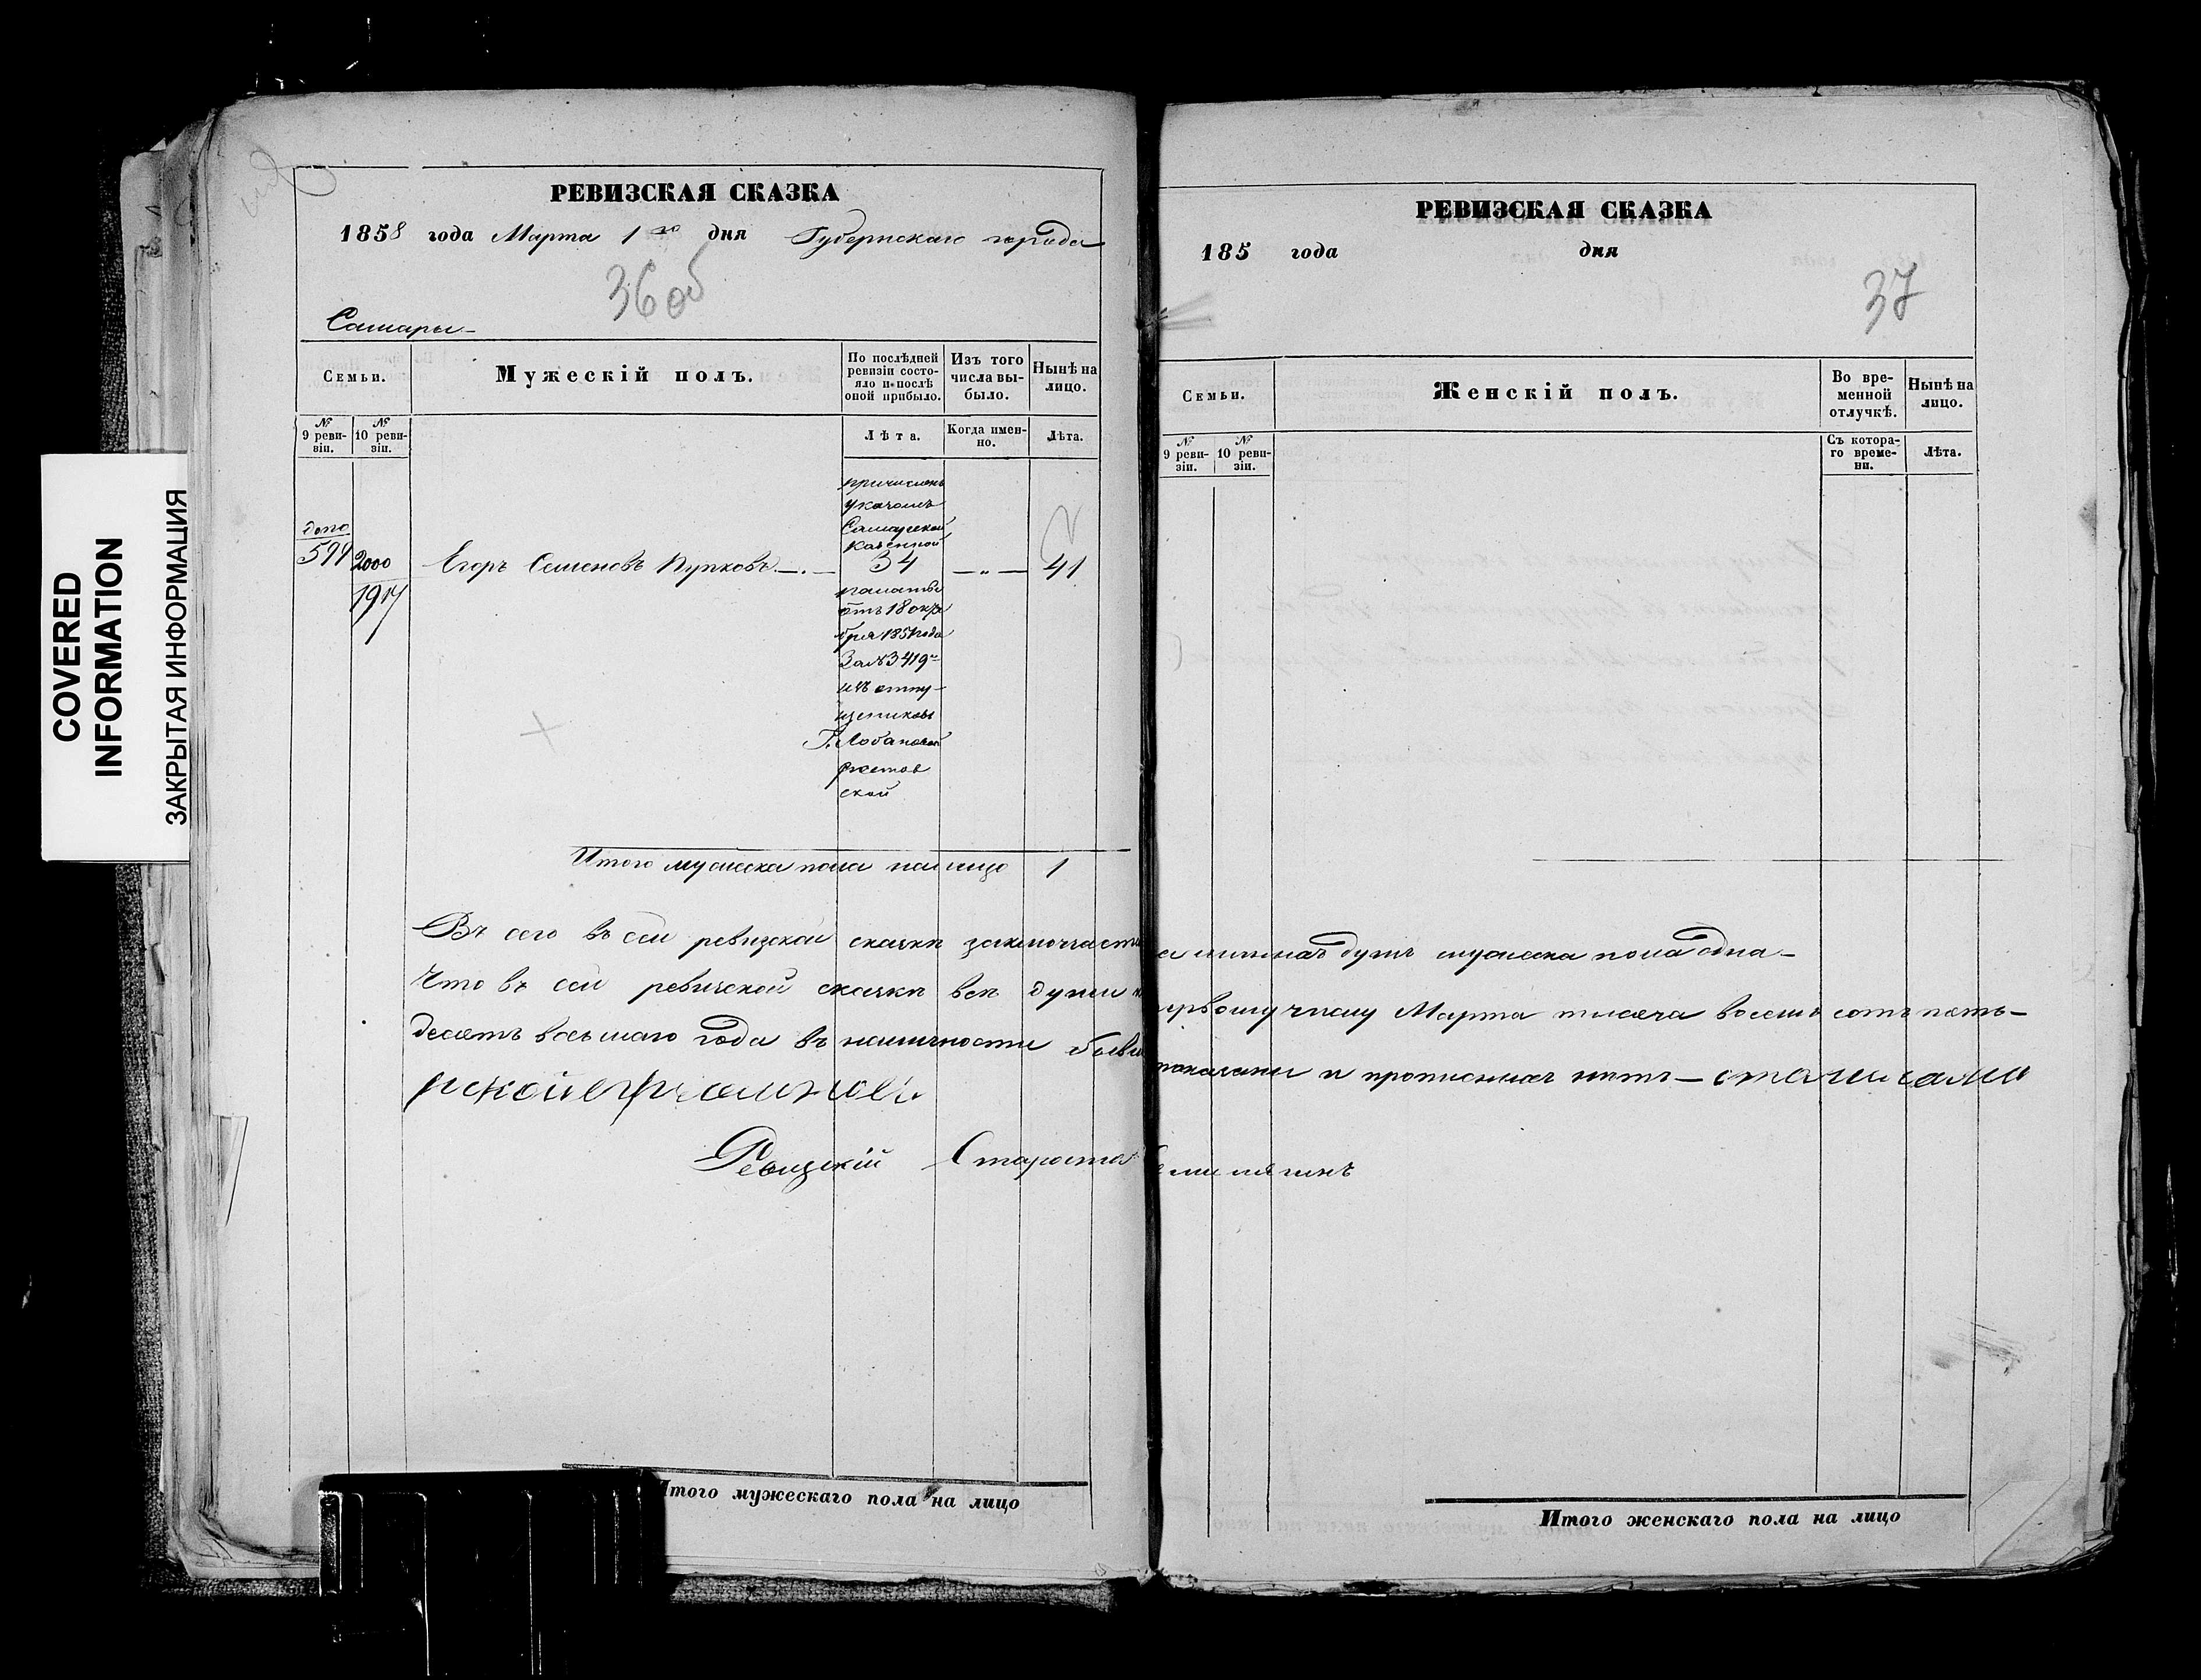 COVERED
INFORMATION
ЗАКРЫТАЯ ИНФОРМАЦИЯ
РЕВИЗСКАЯ СКАЗКА
1858 года Марта 1го дня Губернскаго города
36 об
Самары
Семьи.
Мужескій полъ.
По послѣдней
ревизіи состо-
яло и послѣ
оной прибыло.
Изъ того
числа вы-
было.
Нынѣ на
лицо.
№
9 реви-
зіи.
№
10 реви-
зіи.
Лѣта.
Когда имен-
но.
Лѣта.
допо
599
2000
1917
Егоръ Семеновъ Пупковъ
причисленъ
указомъ
Самарской
казенной
34
палаты
отъ 18 октя
бря 1851 года
За № 3419
изъ отпу-
щениковъ
Г. Лобановой
ростов
ской
41
Итого мужеска пола на лицо 1
Всего въ сей ревизской сказкѣ заключается наличныхъ душъ мужеска пола одна
Что въ сей ревизской сказкѣ всѣ души къ первому числу Марта тысяча восемь сотъ пять-
десятъ восьмаго года въ наличности бывшія показаны и прописныхъ нѣтъ
Ревизскій Староста
РЕВИЗСКАЯ СКАЗКА
185 года дня
37
Семьи.
Женскій полъ.
Во вре-
менной
отлучкѣ.
Нынѣ на
лицо.
№
9 реви-
зіи.
№
10 реви-
зіи.
Съ котора-
го време-
ни.
Лѣта.
Итого мужескаго пола на лицо
Итого женскаго пола на лицо